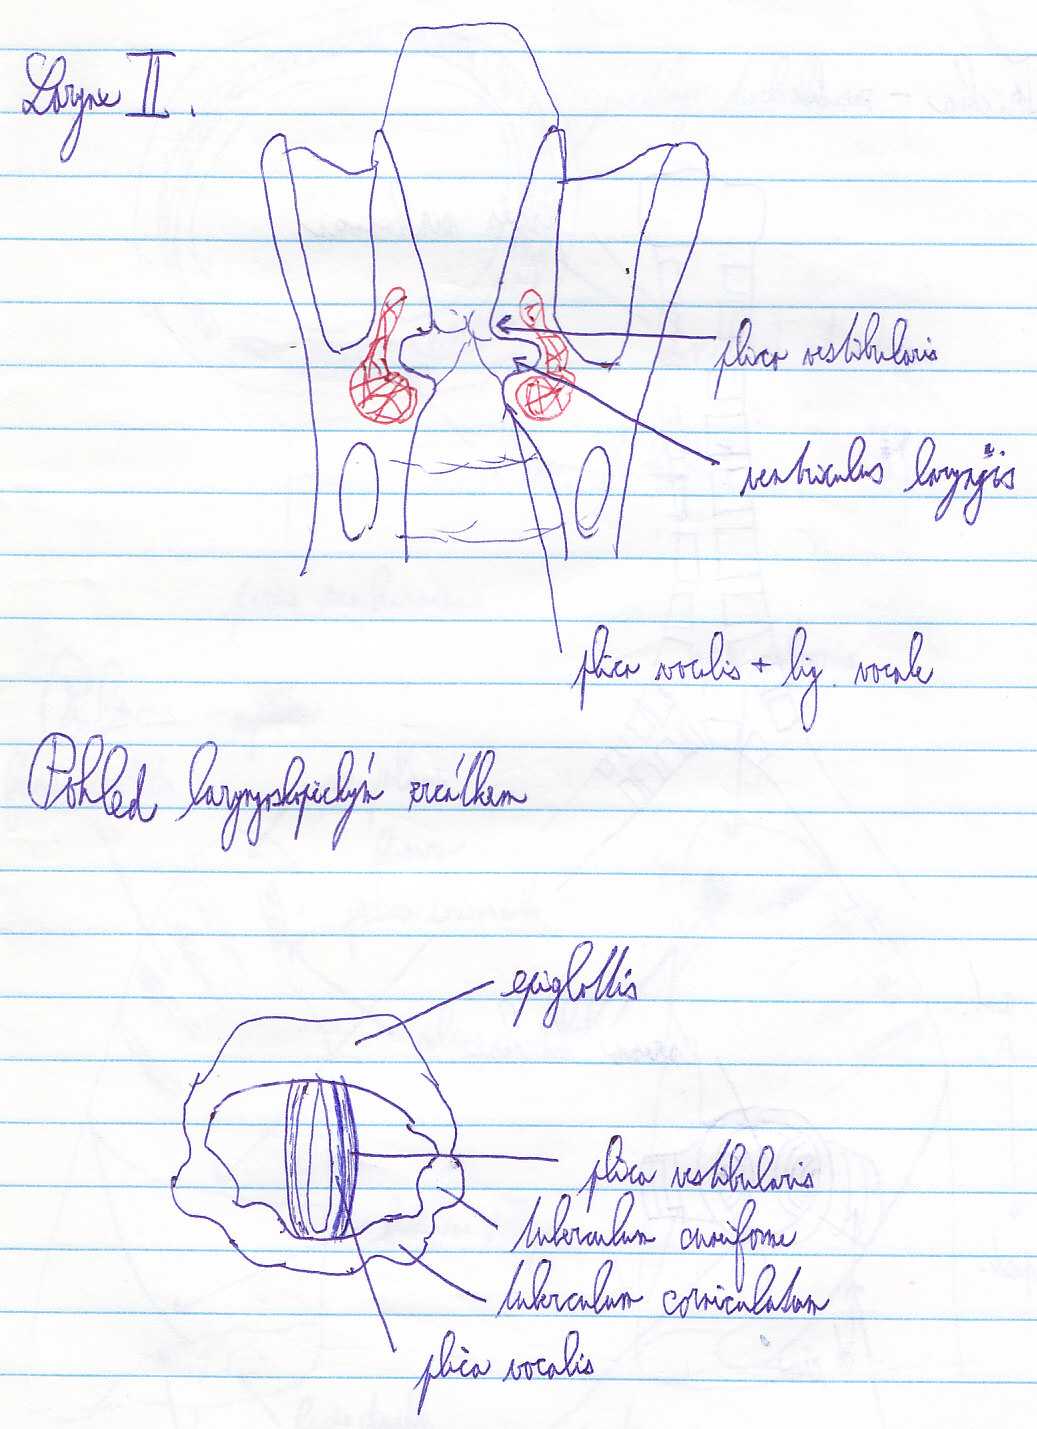 Larynx II.
plica vestibularis
ventriculus laryngis
plica vocalis + lig. vocale
Pohled laryngoskopickým zrcátkem
epiglottis
plica vestibularis
tuberculum cuneiforme
tuberculum corniculatum
plica vocalis